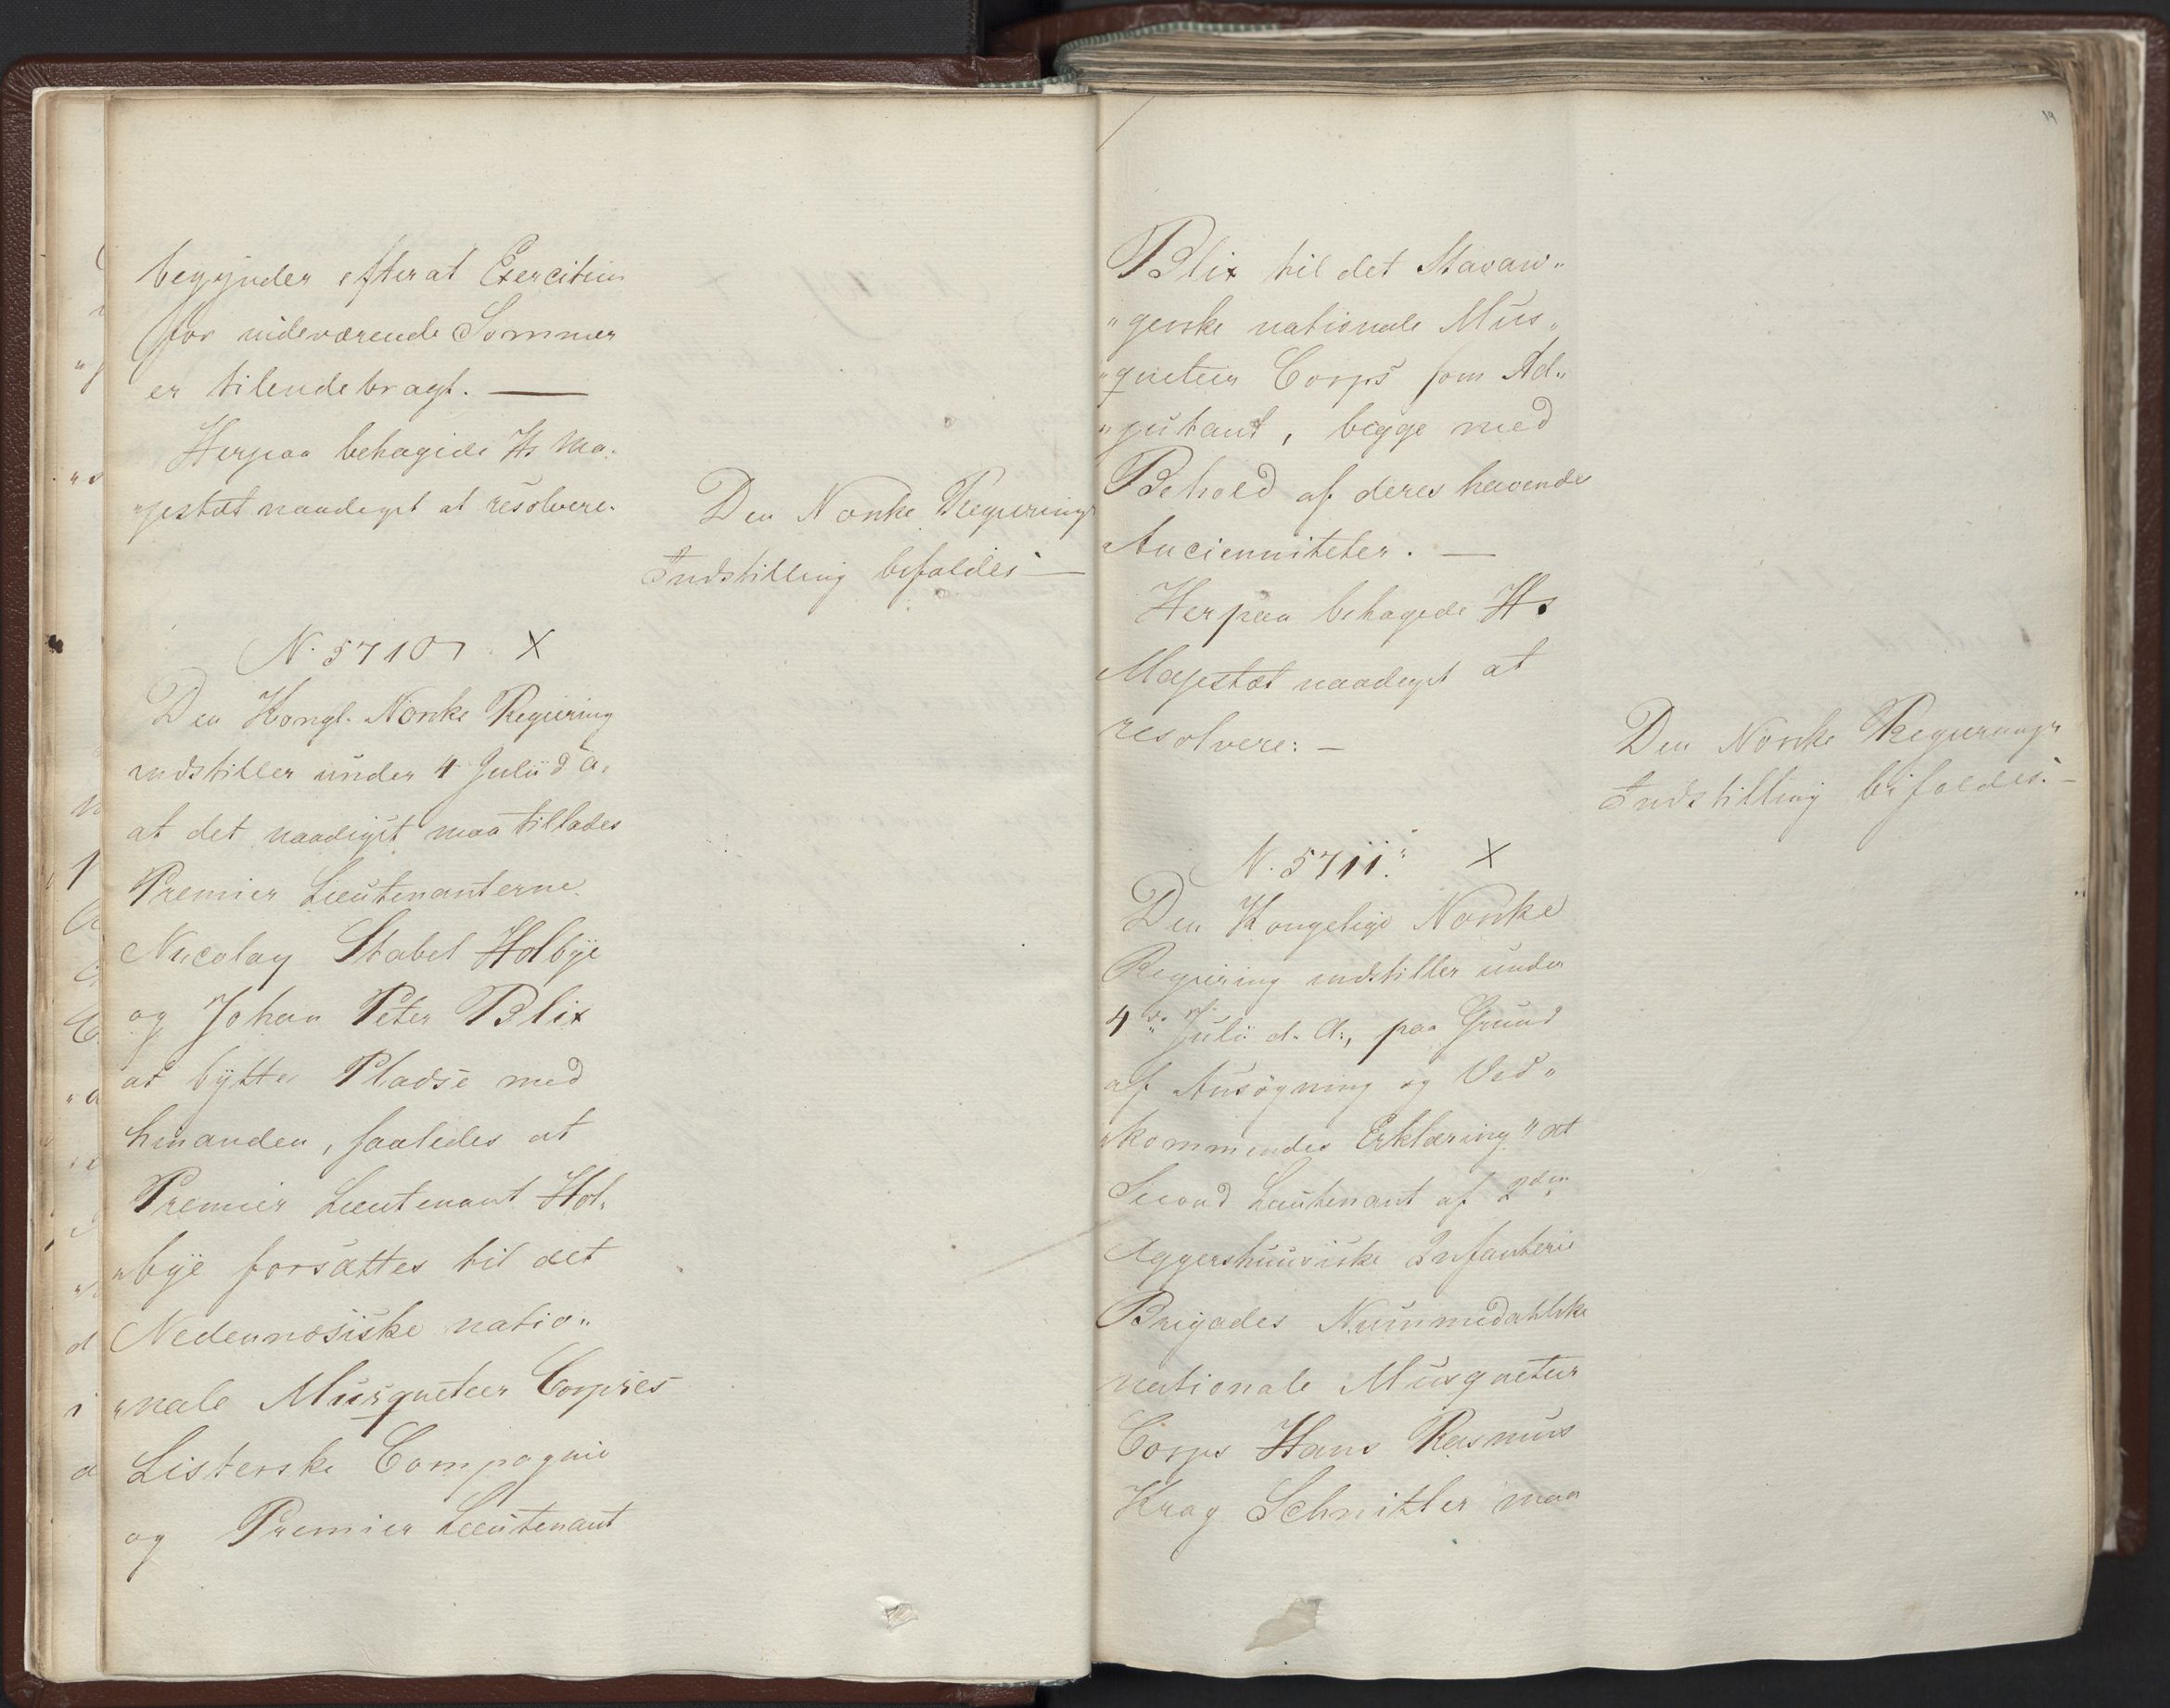 begynder efterat Exercitien
for nideværende Sommer
er tilendebragt. —
Herpaa behagede Hs Ma„
„jestæt naadigst at resolvere.
Den Norske Regierings
Indstilling bifaldes —
N. 5710 X
Den Kongl. Norske Regiering
indstiller under 4 Julii d. A.
at det naadigst maa tillades
Premier Lieutenanterne
Nicolay Stabel Holbye
og Johan Peter Blix
at bytte Pladse med
hinanden, saaledes at
Premier Lieutenant Hol„
„bye forsættes til det
Nedennæsiske natio„
„nale Musqueteer Corpses
Listerske Compagnie
og Premier Lieutenant
19
Blix til det Stavan„
„gerske nationale Mus„
„queteer Corps som Ad„
„jutant, begge med
Behold af deres havende
Ancienniteter. —
Herpaa behagede Hs
Majestæt naadigst at
resolvere: —
Den Norske Regierings
Indstilling bifaldes. —
N. 5711. X
Den Kongelige Norske
Regiering indstiller under
4de Julii d. A., paa Grund
af Ansøgning og Ved„
„kommendes Erklæring" at
Second Lieutenant af 2den
Aggershuusiske Infanterie
Brigades Nummedahlske
nationale Musqueteer
Corps Hans Rasmus
Krag Schnitler maa